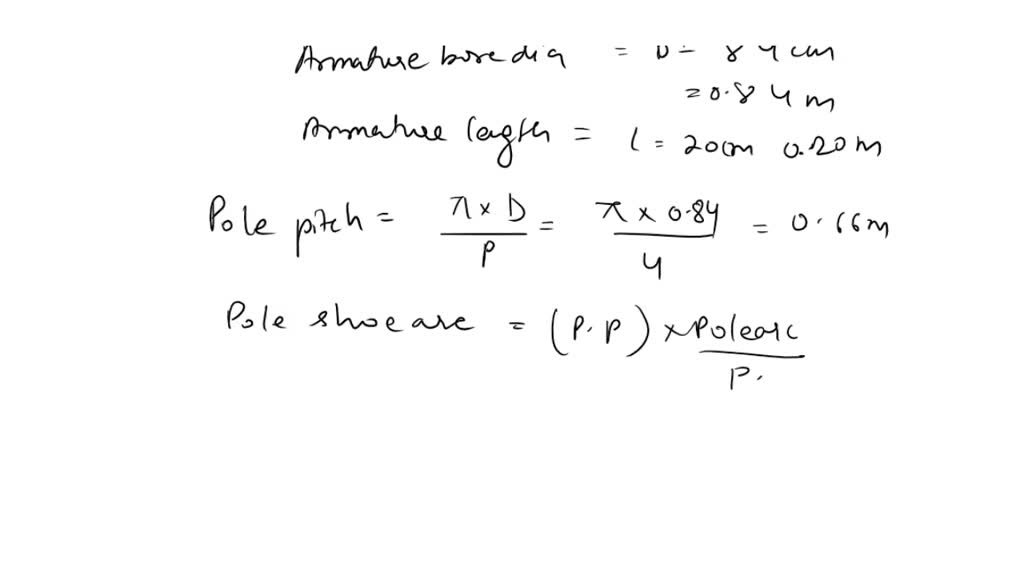 Armature bore dia = D = 84 cm
= 0.84 m
Armature length = l = 20cm 0.20m
Pole pitch = π × D / P = π × 0.84 / 4 = 0.66m
Pole shoe arc = (P.P) × Pole arc / P.